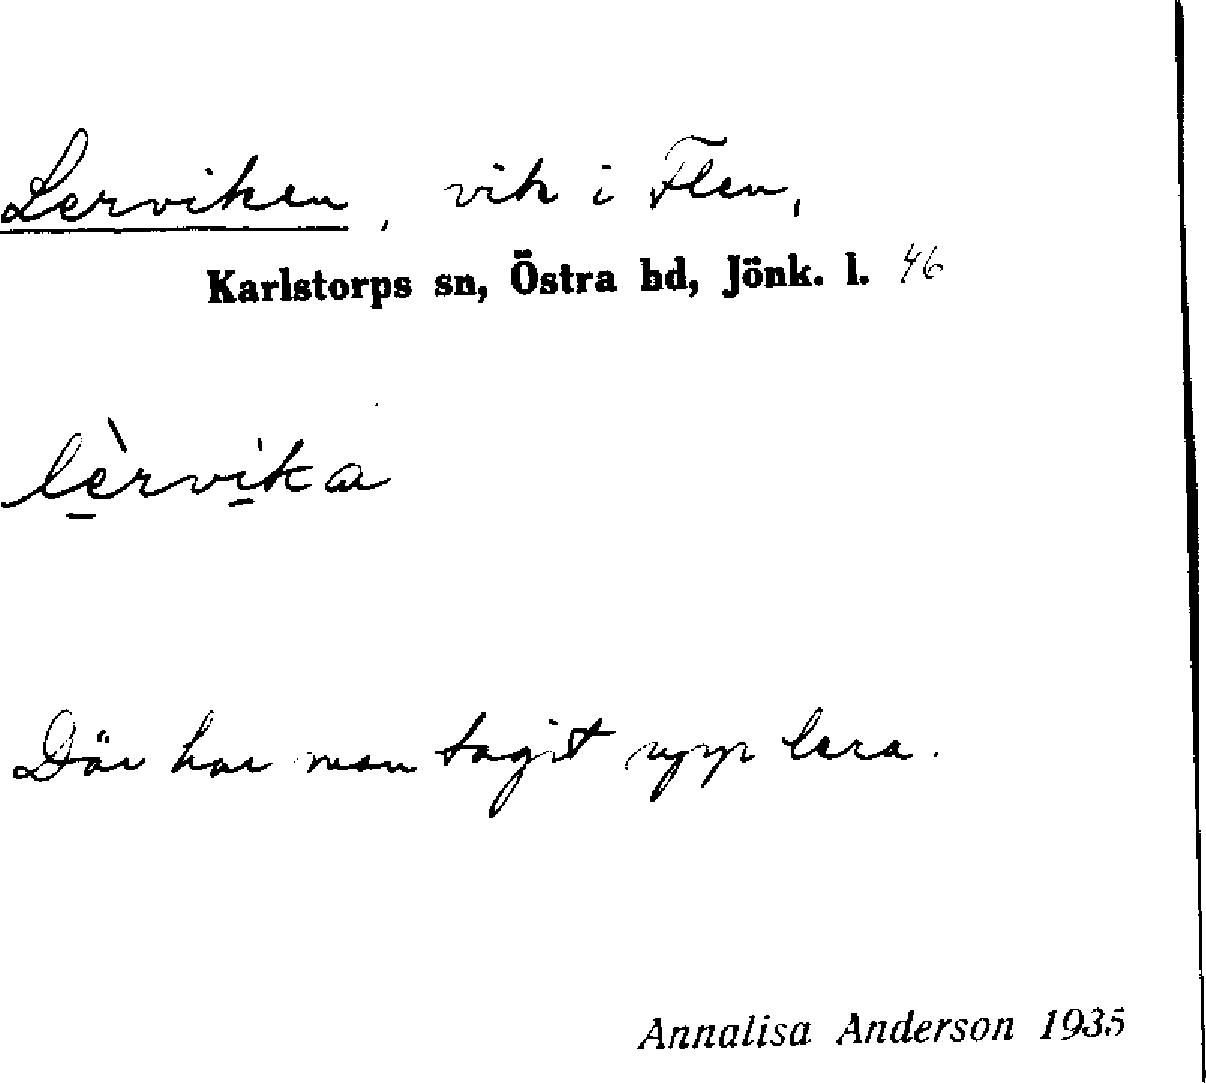 Lerviken, vik i Flen,
Karlstorps sn, Östra hd, Jönk. l. 46
lèrvika
Där har man tagit upp lera.
Annalisa Anderson 1935